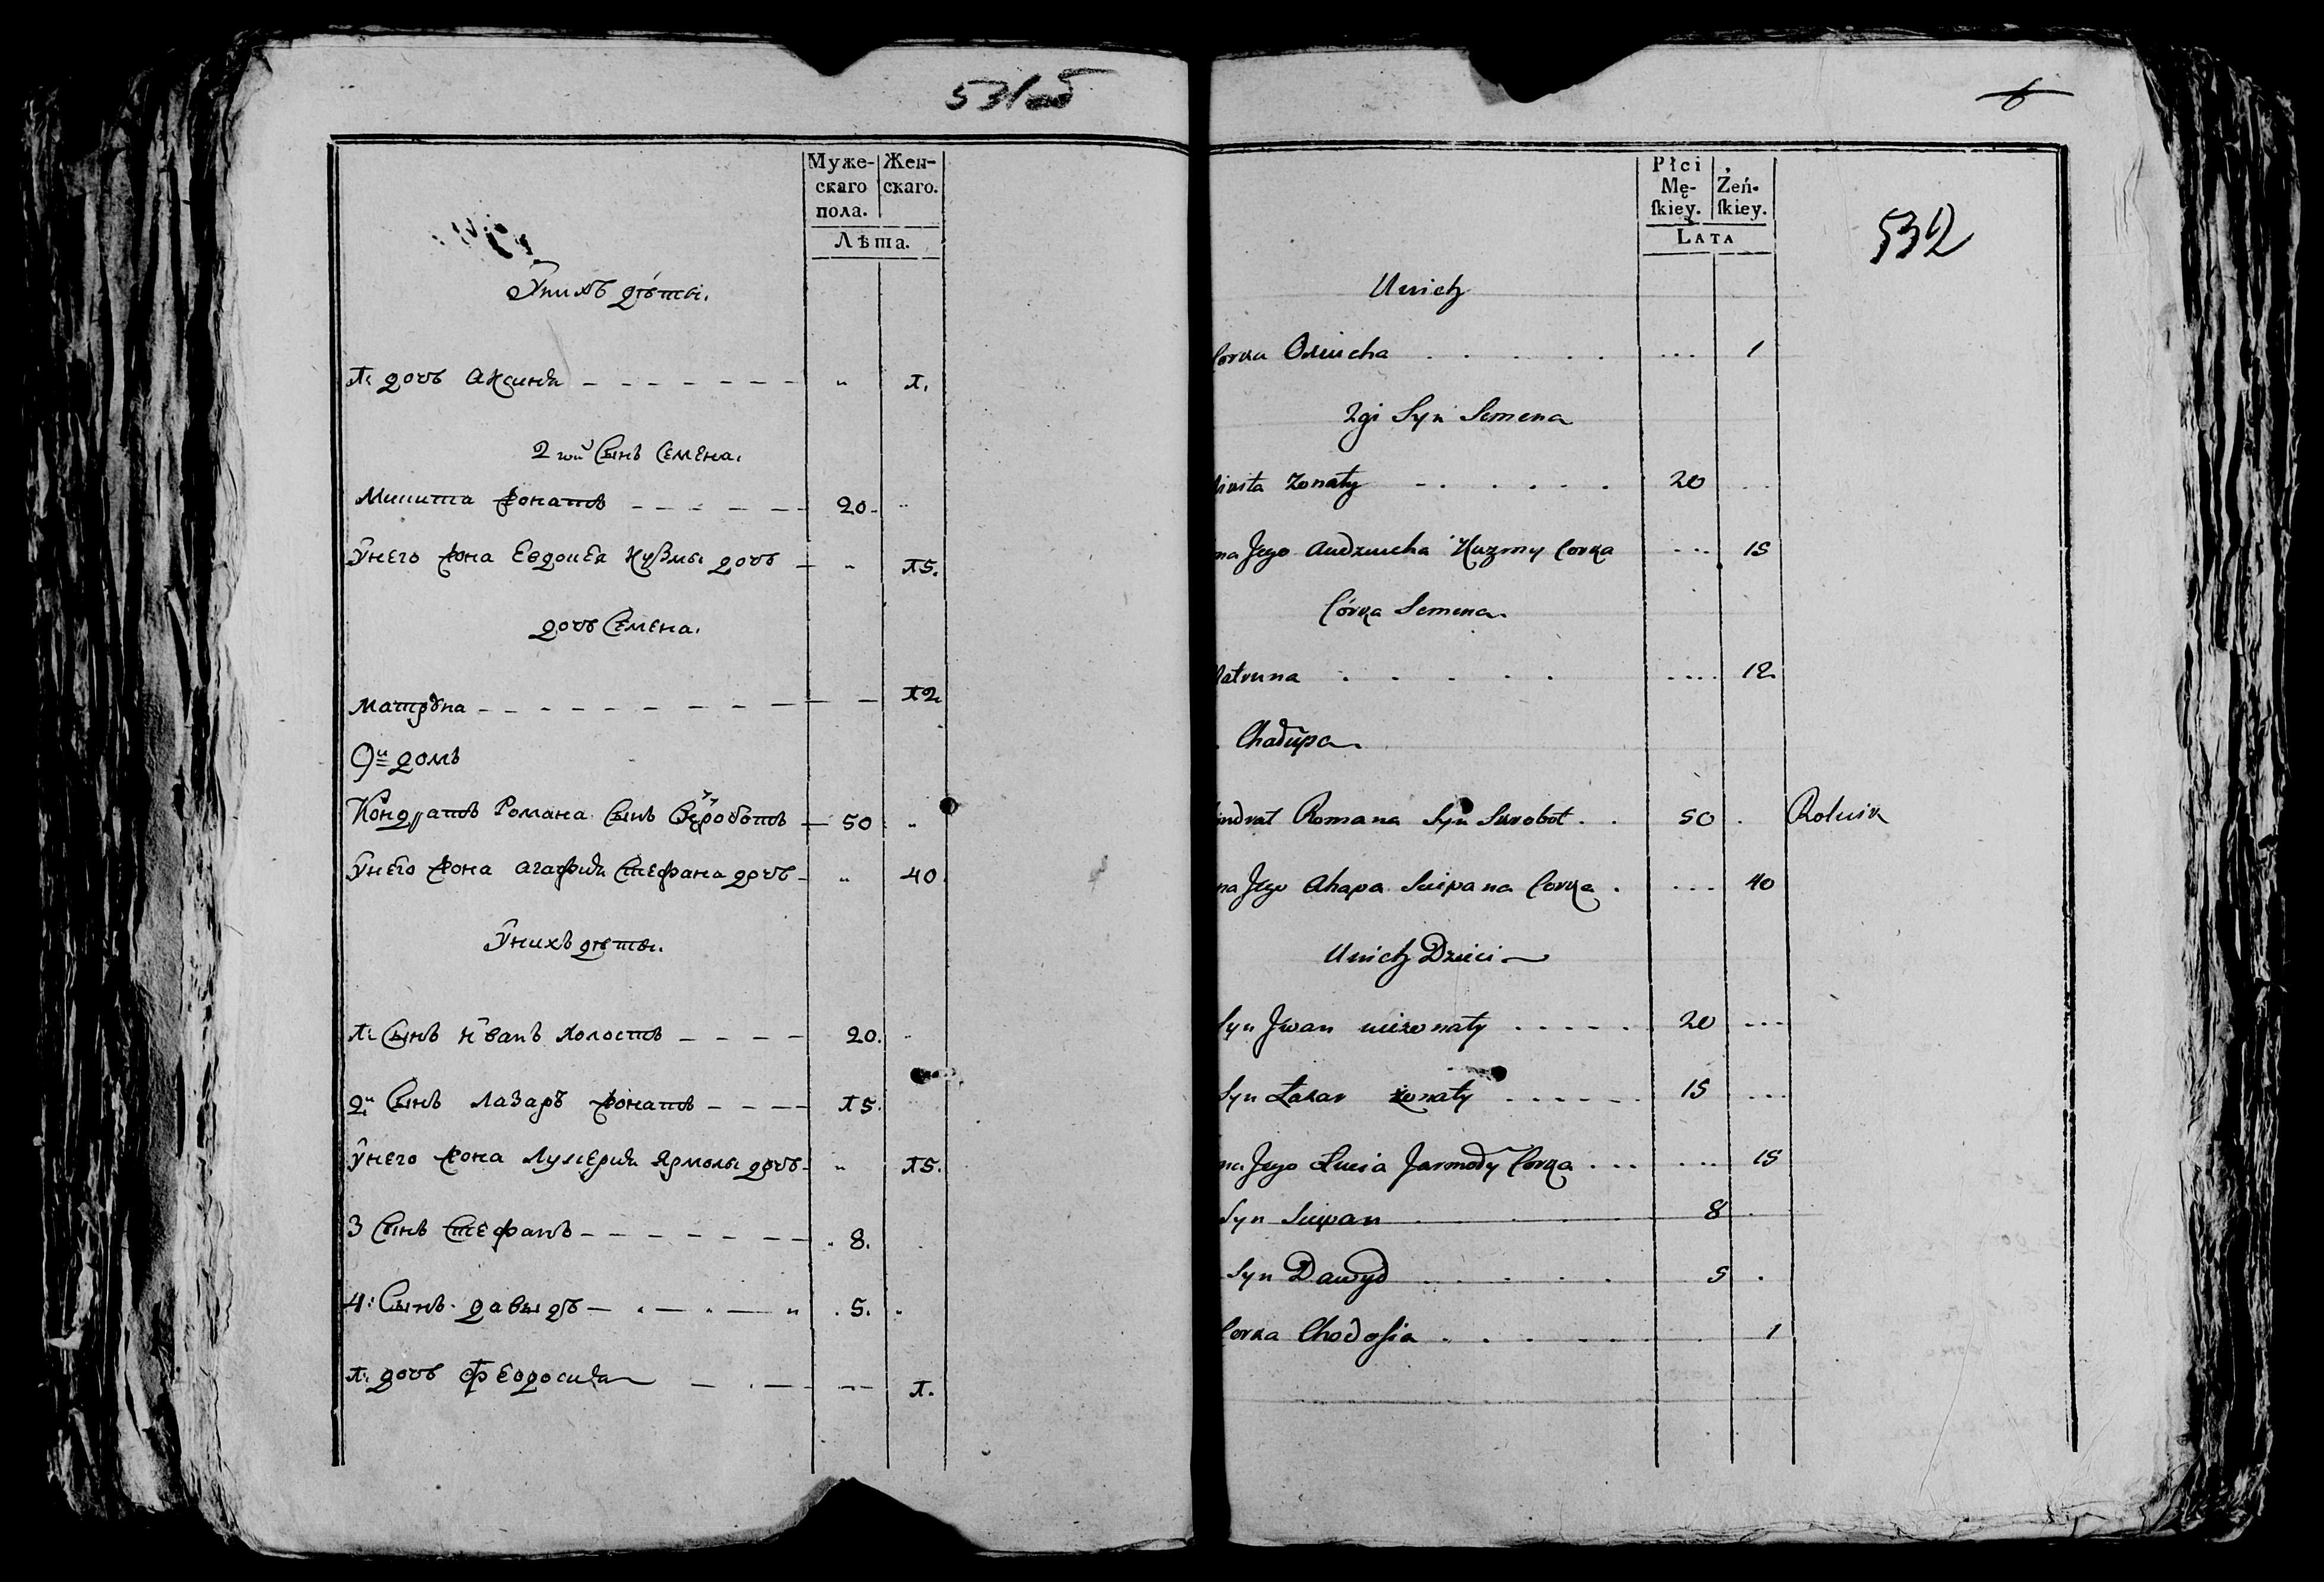 531об
Муже- Жен-
скаго скаго.
пола.
Лѣта.
Унихъ дѣти.
1: дочь Аксинья 1.
2 гой Сынъ Семена.
Микита жонатъ 20.
Унего жона Евдокея Кузмы дочь 15.
дочь Семена.
Матруна 12
9й домъ
Кондратъ Романа Сынъ Сероботъ 50
Унего жона Агафия Стефана дочь 40
Унихъ дѣти.
1: Сынъ Иванъ холостъ 20.
2й Сынъ Лазаръ жонатъ 15.
Унего жона Лукерия Ярмолы дочь 15.
3 Сынъ Стефанъ 8.
4: Сынъ давыдъ 5.
1: дочь Феодосия 1.
6
Płci
Mę- Żeń-
ſkiey. ſkiey.
LATA
532
Unich
Corka 1
2gi Syn Semena
żonaty 20
Jego Audziucha Kuzmy Corka 15
Córka Semena
atruna 12
Chałupa
ndrat Romana Syn Serobot 50 Rolnik
na Jego Ahapa Sciepana Corka 40
Unich Dzieci
Syn Jwan nieżonaty 20
Syn Łazar żonaty 15
na Jego Jarmoły Corka 15
Syn Sciepan 8
Syn Dawyd 5
Corka Chodosia 1